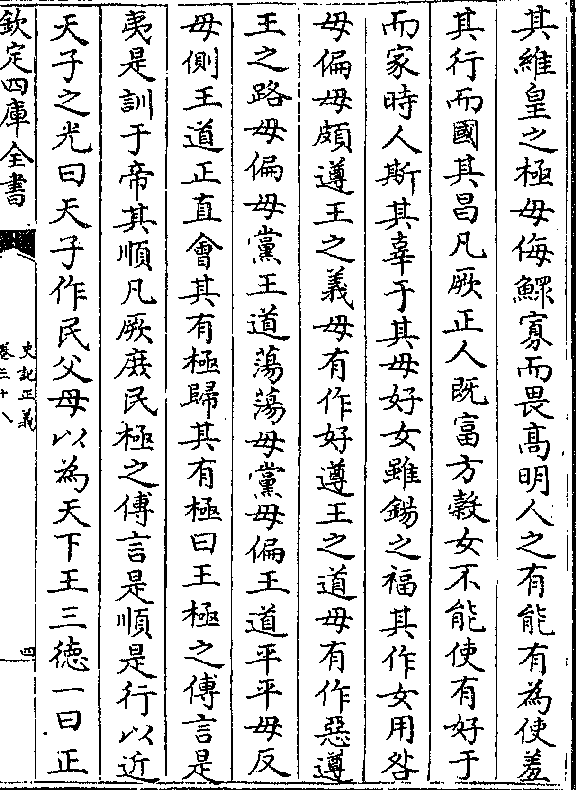 其維皇之極毋侮鰥寡而畏髙明人之有能有為使羞
其行而國其昌凡厥正人既富方榖女不能使有好于
而家時人斯其辜于其毋好女雖錫之福其作女用咎
毋偏毋頗遵王之義毋有作好遵王之道毋有作惡遵
王之路毋偏毋黨王道蕩蕩毋黨毋偏王道平平毋反
毋側王道正直會其有極歸其有極曰王極之傅言是
夷是訓于帝其順凡厥庶民極之傅言是順是行以近
天子之光曰天子作民父母以為天下王三徳一曰正
欽定四庫全書
史記正義
卷三十八
四